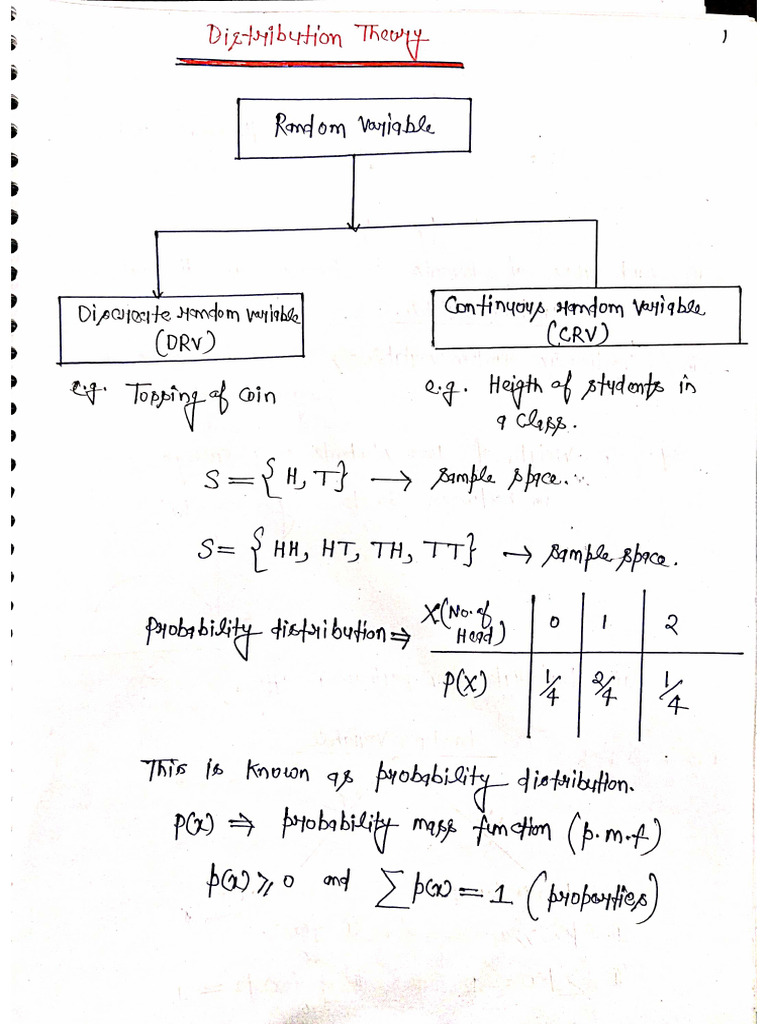 Distribution Theory
1
Random Variable
Discrete random variable
(DRV)
Continuous random variable
(CRV)
e.g. Tossing of coin
e.g. Heigth of students in
a class.
S = {H, T} → sample space.
S = {HH, HT, TH, TT} → sample space.
probability distribution ⇒ X(No. of Head) 0 1 2
P(X) 1/4 2/4 1/4
This is known as probability distribution.
P(x) ⇒ probability mass function (p.m.f)
p(x) ⩾ 0 and ∑ p(x) = 1 (properties)